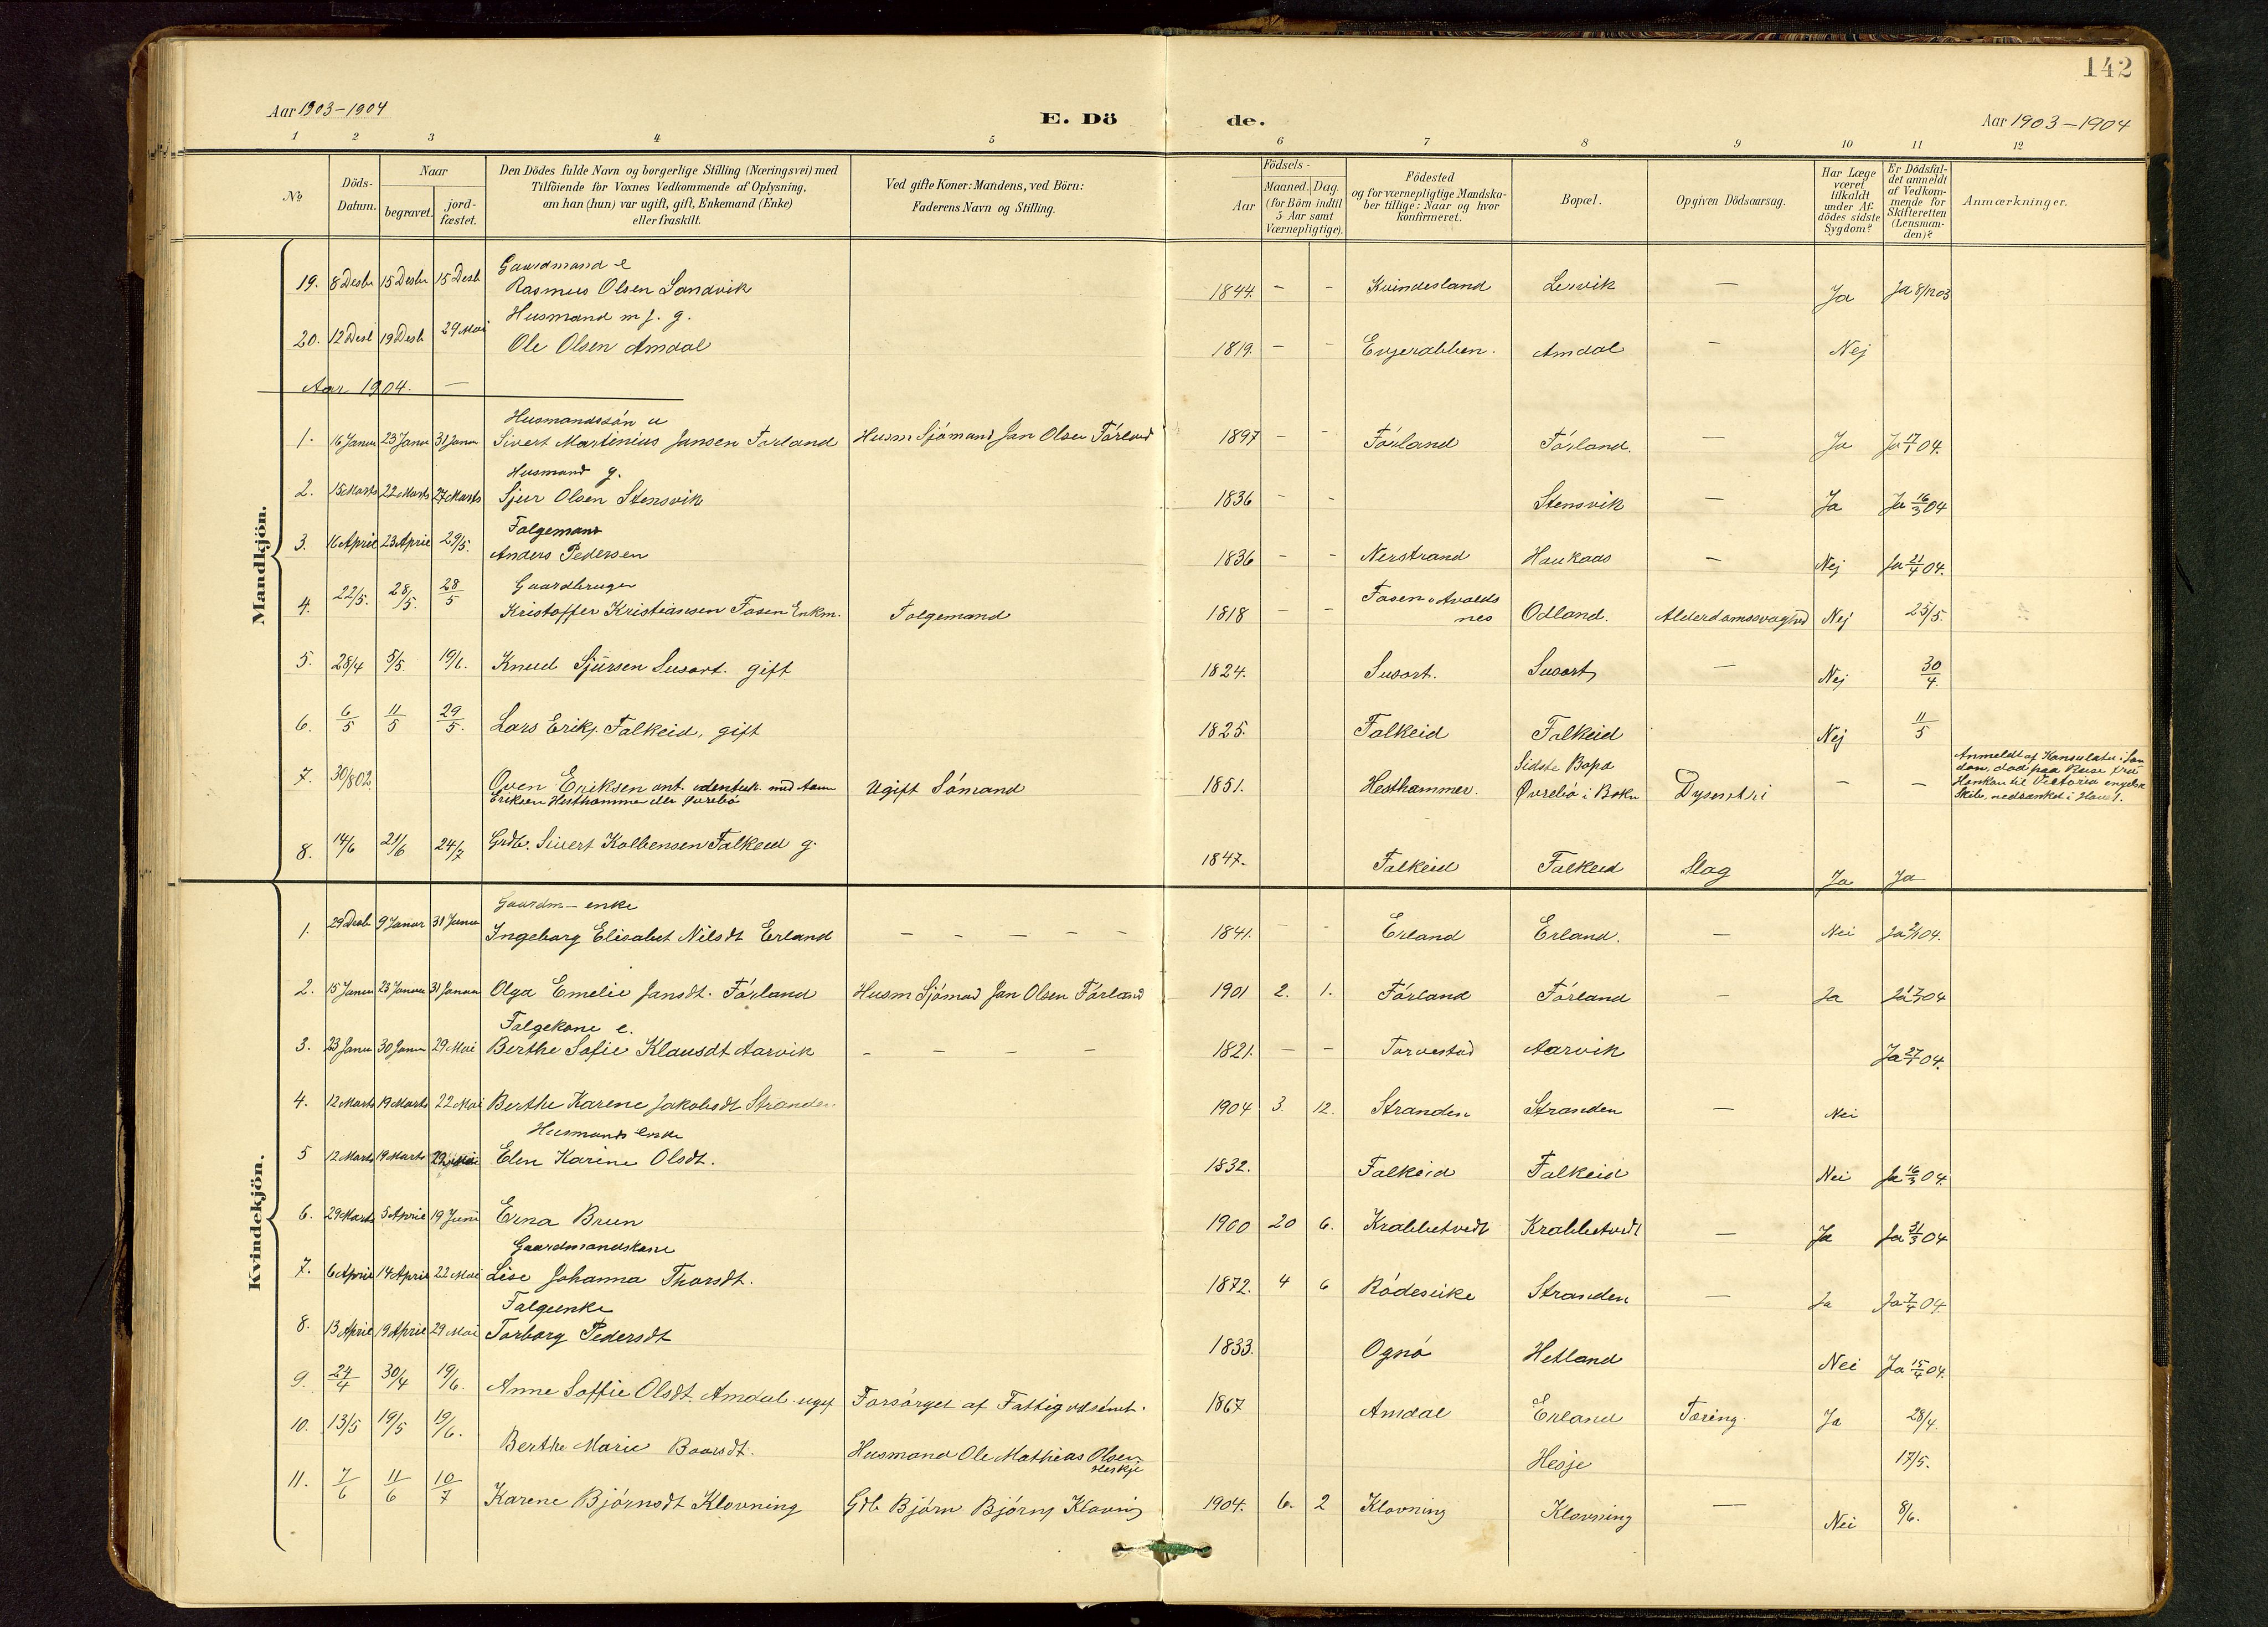 142
Aar 1903-1904
E. Dö de.
Aar 1903-1904
1 2 3 4 5 6 7 8 9 10 11 12
No
Döds-Datum.
Naar
begravet.
jord-fæstet.
Den Dödes fulde Navn og borgerlige Stilling (Næringsvei) med
Tilföiende for Voxnes Vedkommende af Oplysning,
om han (hun) var ugift, gift, Enkemand (Enke)
eller fraskilt.
Ved gifte Koner: Mandens, ved Börn:
Faderens Navn og Stilling.
Födsels-
Aar
Maaned. Dag.
(for Börn indtil
5 Aar samt
Værnepligtige).
Födested
og for værnepligtige Mandska-
ber tillige: Naar og hvor
Konfirmeret.
Bopæl.
Opgiven Dödsaarsag.
Har Læge
været
tilkaldt
under Af-
dödes sidste
Sygdom?
Er Dödsful-
det anmeldt
af Vedkom-
mende for
Skifteretten
(Lensman-
den)?
Anmærkninger.
Mandkjön.
Gaardmand e
19. 8 Desbr 15 Desbr 15 Desb Rasmus Olsen Sandvik 1844. - - Kvindesland Lervik — Ja Ja 8/12 03
Husmand m f. g.
20. 12 Desb 19 Desb 29 Mai Ole Olsen Amdal 1819. - - Evjerabben. Amdal — Nej
Aar 1904. —
Husmandssön u
1. 16 Janu 23 Janu 31 Janu Sivert Martinius Jansen Førland Husm Sjómand Jan Olsen Fórland 1897 - - Fórland Fórland. — Ja Ja 17/1 04.
Husmand g.
2. 15 Marts 22 Marts 27 Marts Sjur Olsen Stensvik 1836 - - Stensvik — Ja Ja 16/3 04
Folgemand
3. 16 April 23 April 29/5. Anders Pedersen 1836 - - Nerstrand Haukaas — Nej Ja 21/4 04.
Gaardbruger
4. 22/5. 28/5. 28/5 Kristoffer Kristiansen Fosen Enkm. Folgemand 1818 - - Fosen, Avalds
nes Odland. Alderdomssvaghed Nej 25/5.
5. 28/4 5/5 19/6. Knud Sjursen Susort. gift 1824. Susort. Susort — Nej 30/4.
6. 6/5 11/5 29/5. Lars Eriks. Falkeid, gift 1825. Falkeid Falkeid Nej 11/5
7. 30/8 02 Oven Eriksen ant. identisk med Aamu
Eriksen Hesthammer eller Øvrebö Ugift Sómand 1851. Hesthammer. Sidste Bopæ
Øvrebö i Bokn Dysentri — — Anmeldt af Konsulatet i Lon
don, död paa Reise fra
Hankau til Victoria engelsk
Skib, nedsænket i Havet.
8. 14/6 21/6 24/7 Grdb. Sivert Kolbensen Falkeid g. 1847. Falkeid Falkeid Slag Ja Ja
Kvindekjön.
Gaardm- enke
1. 29 Desb 9 Januar 31 Janua Ingeborg Elisabet Nilsdt Erland - - - - - 1841. - - Erland Erland. — Nei Ja 2/1 04.
2. 15 Janu 23 Januar 31 Januar Olga Emelie Jansdt. Fórland Husm Sjómand Jan Olsen Fórland 1901 2. 1. Fórland Fórland — Ja Ja 17/1 04
Folgekone e.
3. 23 Janu 30 Janu 29 Mai Berthe Sofie Klausdt Aarvik - - - - 1821. - - Torvestad Aarvik Ja 27/1 04.
4. 12 Marts 19 Marts 22 Mai Berthe Karene Jakobsdt Stranden 1904 3. 12. Stranden Stranden — Nei
Husmands enke
5 12 Marts 19 Marts 29 Mai Elen Karine Olsdt. 1832. Falkeid Falkeid Nei Ja 16/3 04.
6. 29 Marts 5 April 19 Juni Erna Brun 1900 20 6. Krabbetvedt Krabbetvedt — Ja Ja 31/3 04
Gaardmandskone
7. 6 April 14 April 22 Mai Lise Johanna Thorsdt. 1872. 4 6 Ródesike Stranden — Ja Ja 7/4 04.
Folgeenke
8. 13 April 19 April 29 Mai Torborg Pedersdt 1833. Ognö Hetland Nei Ja 15/4 04.
9. 24/4 30/4 19/6. Anne Soffie Olsdt. Amdal ugif Forsörget af Fattigvæsenet. 1867 Amdal Erland Tæring. Ja 28/4.
10. 13/5 19/5 19/6. Berthe Marie Baarsdt. Husmand Ole Mathias Olsen
Heskje Hesje 17/5.
11. 7/6 11/6 10/7 Karene Bjórnsdt Klovning Gdb Björn Björns Klovnig 1904. 6. 2 Klovning Klovning — Nei 8/6.